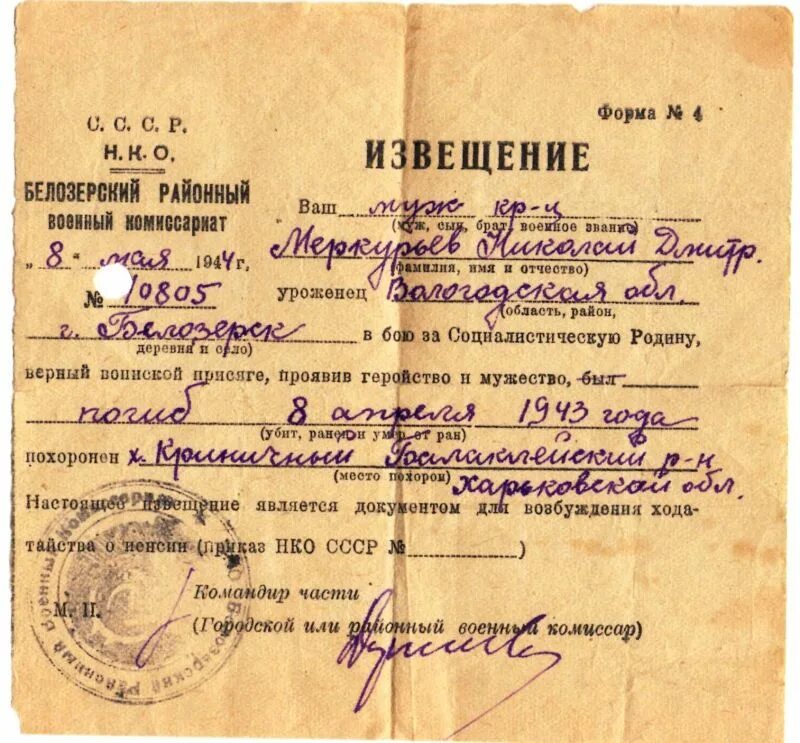 Форма № 4
С. С. С. Р.
Н. К. О.
БЕЛОЗЕРСКИЙ РАЙОННЫЙ
ВОЕННЫЙ КОМИССАРИАТ
„ 8 " мая 1944 г.
№ 10805
ИЗВЕЩЕНИЕ
Ваш муж кр-ц
(муж, сын, брат, военное звание)
Меркурьев Николай Дмитр.
(фамилия, имя и отчество)
уроженец Вологодская обл.
(область, район,
г. Белозерск в бою за Социалистическую Родину,
деревня и село)
верный воинской присяге, проявив геройство и мужество, был
погиб 8 апреля 1943 года
(убит, ранен и умер от ран)
похоронен х. Криничный Балаклейский р-н
(место похорон) Харьковской обл.
Настоящее извещение является документом для возбуждения хода-
тайства о пенсии (приказ НКО СССР № )
Командир части
М. П. (Городской или районный военный комиссар)